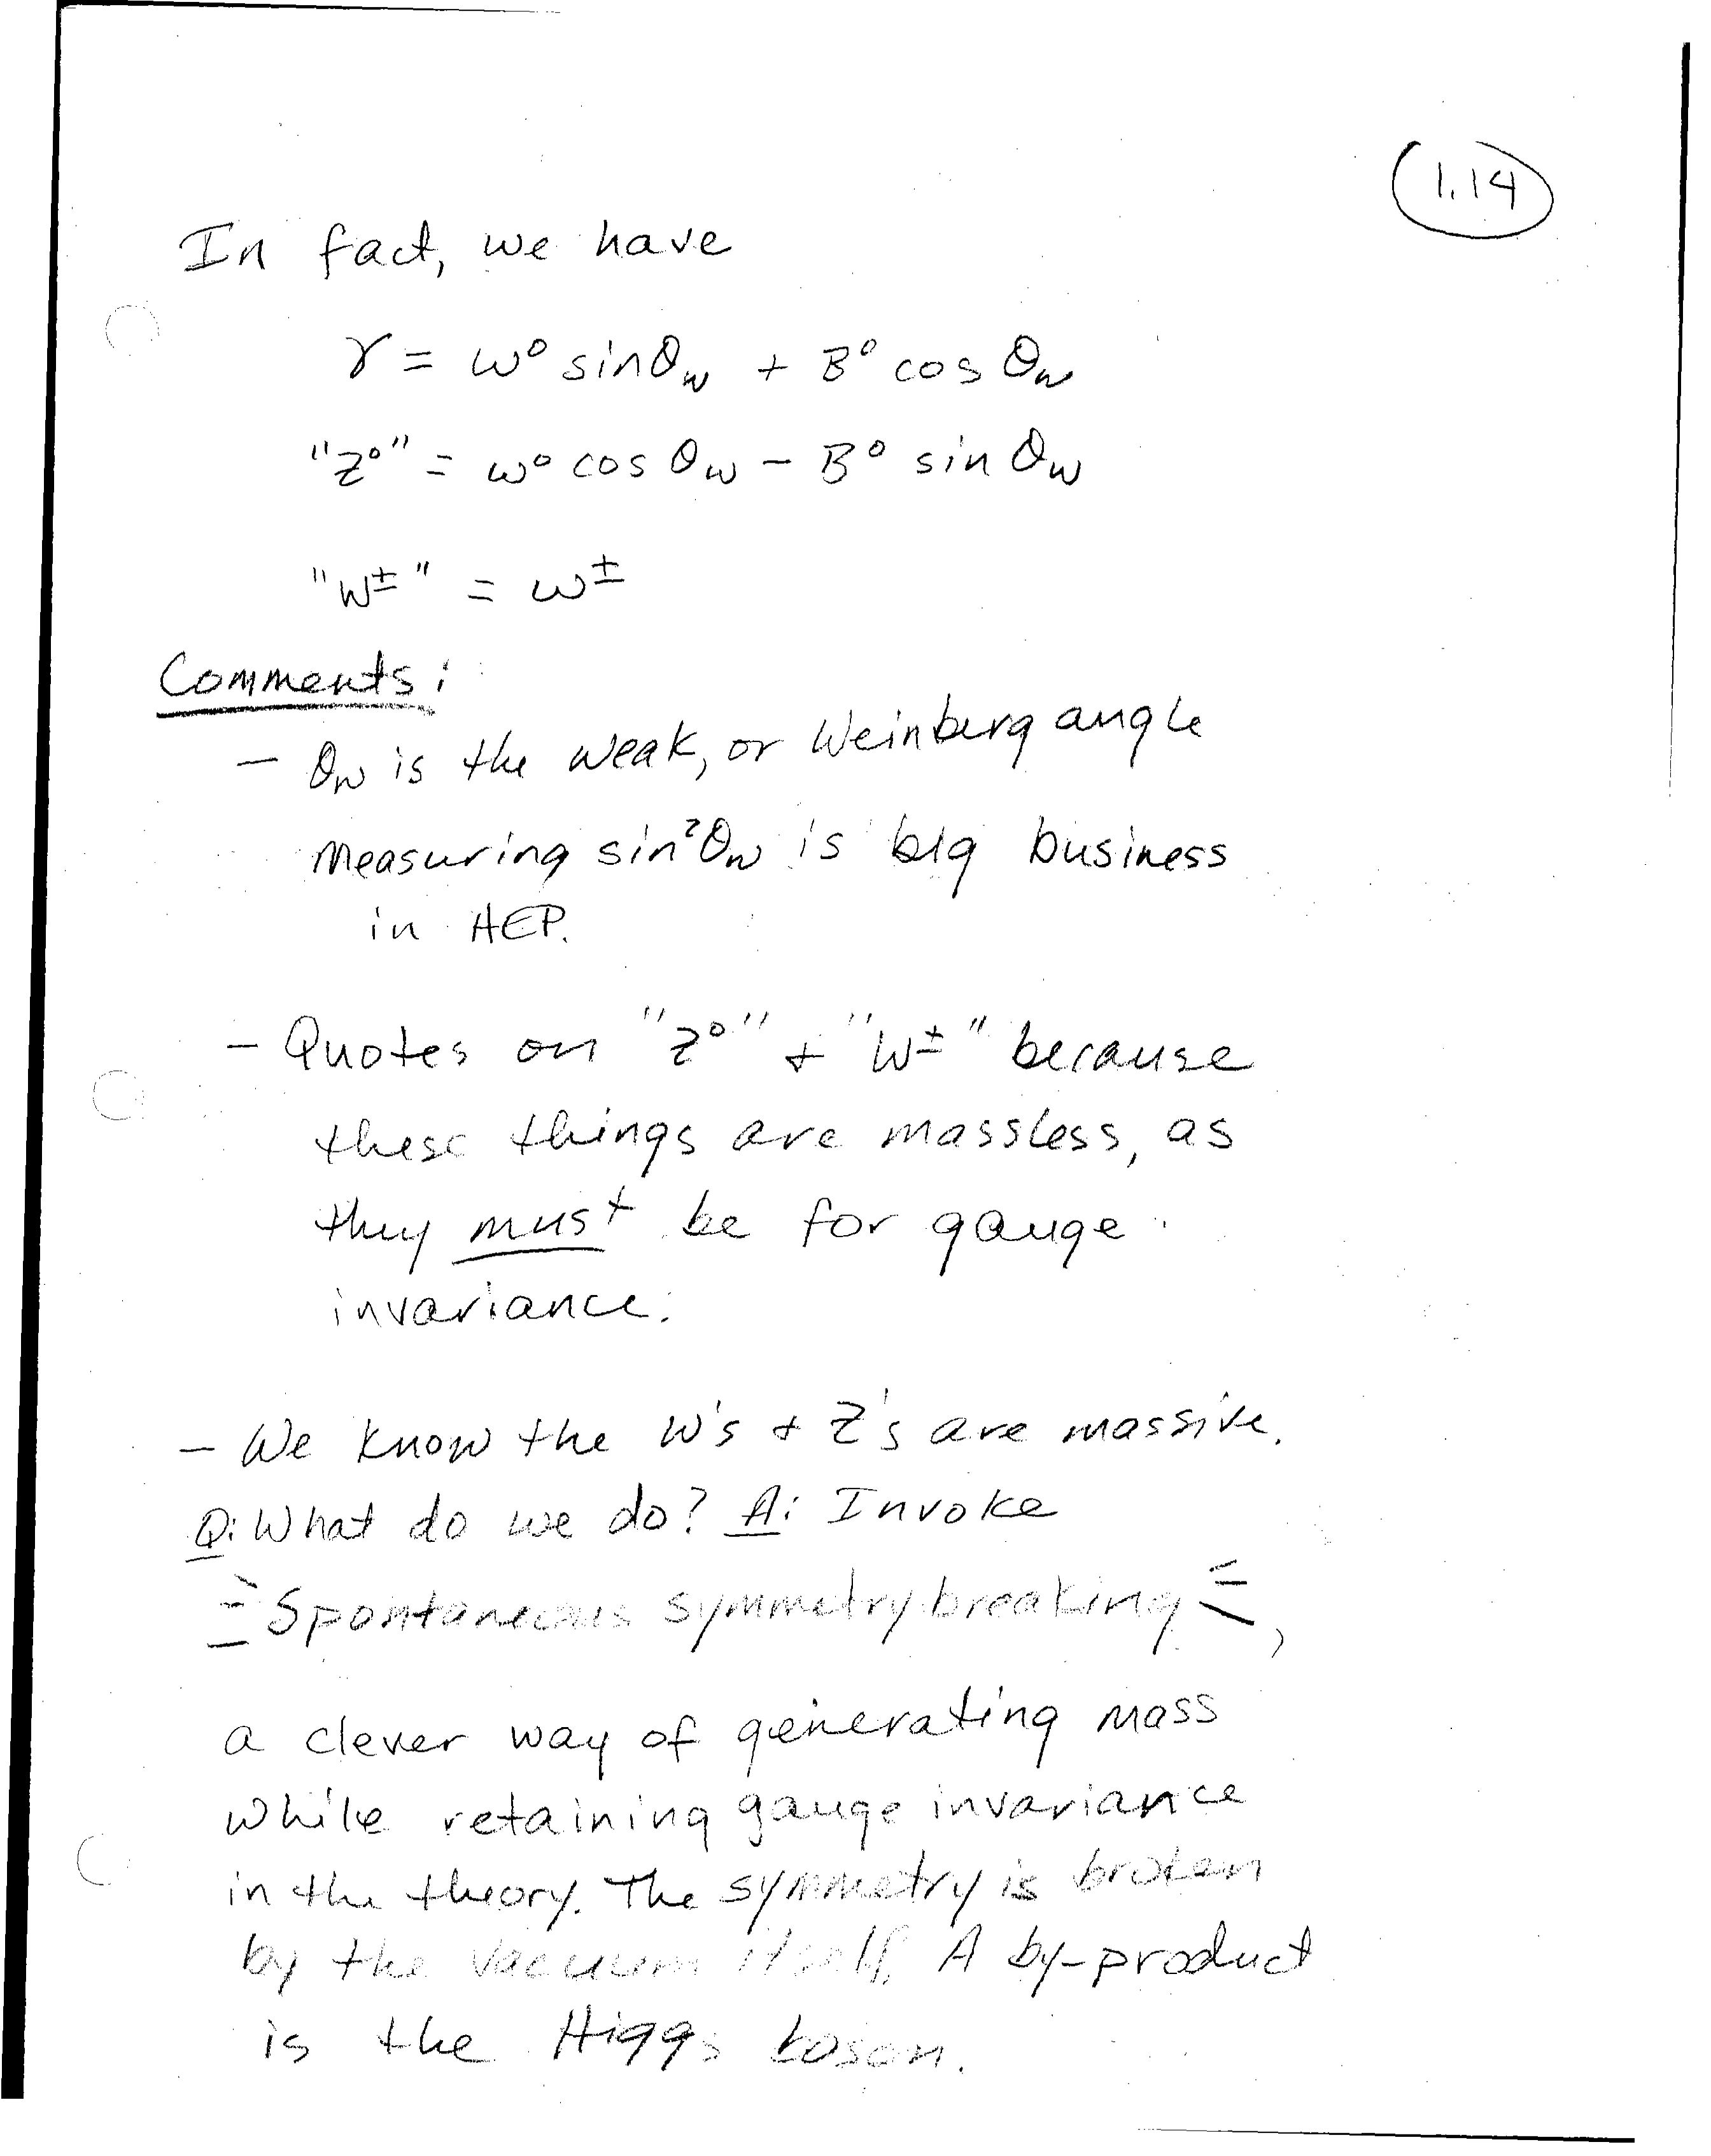 1.14
In fact, we have
γ = W⁰ sinθ_W + B⁰ cos θ_W
"Z⁰" = W⁰ cos θ_W − B⁰ sin θ_W
"W±" = W±
Comments:
– θ_W is the weak, or Weinberg angle
Measuring sin²θ_W is big business
in HEP.
– Quotes on "Z⁰" + "W±" because
these things are massless, as
they must be for gauge
invariance.
– We know the W's + Z's are massive.
Q: What do we do? A: Invoke
Spontaneous symmetry breaking,
a clever way of generating mass
while retaining gauge invariance
in the theory. The symmetry is broken
by the vacuum itself. A by-product
is the Higgs boson.